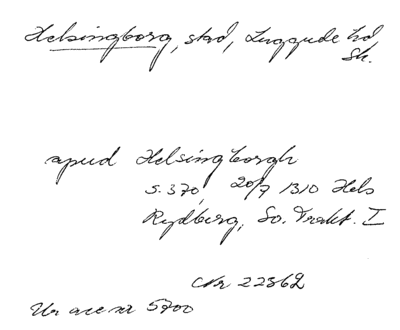 Helsingborg, stad, Luggude hd
Sk.
apud Helsingborgh
s. 370, 20/7 1310 Hels
Rydberg, Sv. Trakt. I
Nr 22362
Ur acc nr 5700